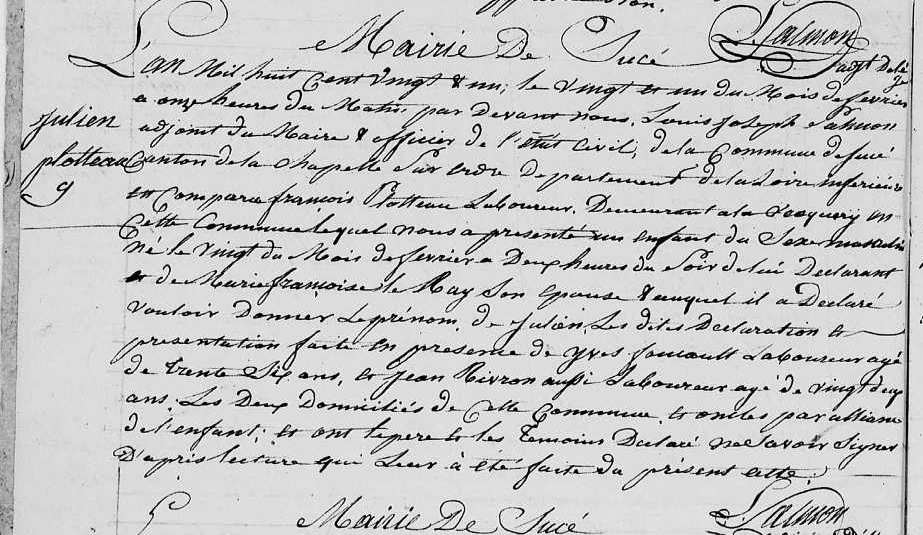 Mairie De Sucé
L. Salmon
adjt délé
L'an Mil huit Cent Vingt & un, le vingt et un du Mois de fevrier
a onze heures du Matin par Devant nous, Louis Joseph Salmon
adjoint du Maire & officier de l'état Civil, de la Commune de Sucé
Canton de la Chapelle Sur erdre Departement de la Loire inferieure
Julien
plotteau
9
est Comparu francois Plotteau Laboureur, Demeurant a la en
Cette Commune lequel nous a presenté un enfant du Sexe masculin
né le vingt du Mois de fevrier a Deux heures du Soir de lui Declarant
et de Marie francoise le Ray Son epouse & auquel il a Declaré
vouloir Donner Le prénom, de Julien. Les dites Declaration et
presentation faite en presence de yves foucault Laboureur agé
de Trente Six ans, et Jean Rivron aussi Laboureur agé de vingt deux
ans. Les Deux Domiciliés de Cette Commune et oncles par alliance
de l'enfant; et ont le pere et les Temoins Déclaré ne Savoir Signer
D'apris lecture qui Leur à été faite du présent acte.
Mairie De Sucé
L. Salmon